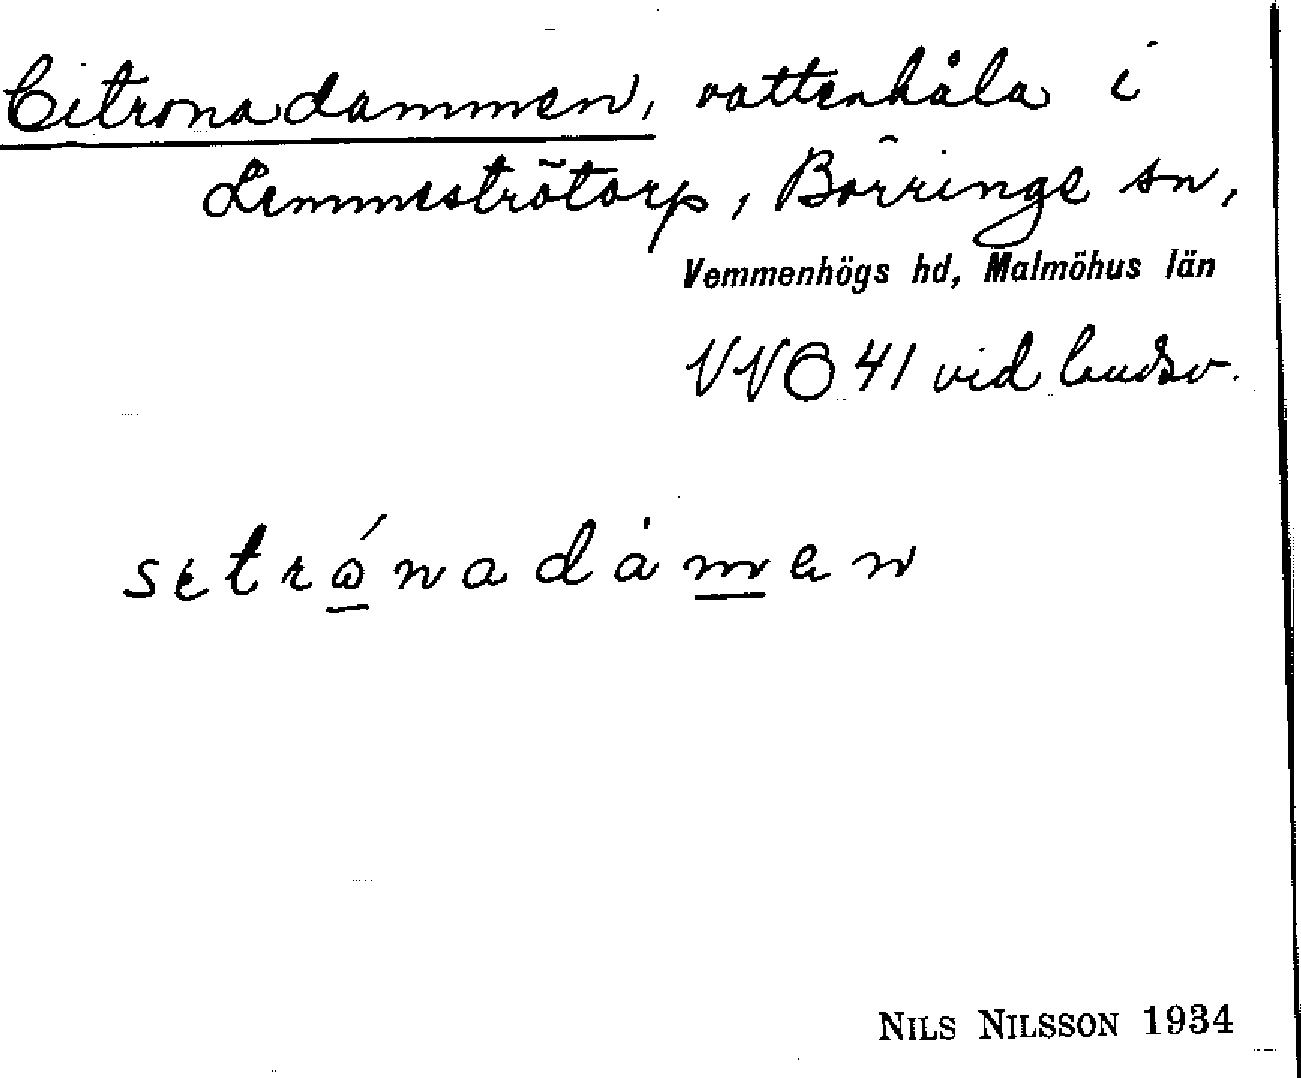 Citronadammen, vattenhåla i
Lemmeströtorp, Börringe sn,
Vemmenhögs hd, Malmöhus län
41 vid landsv.
setrónadàmen
NILS NILSSON 1934